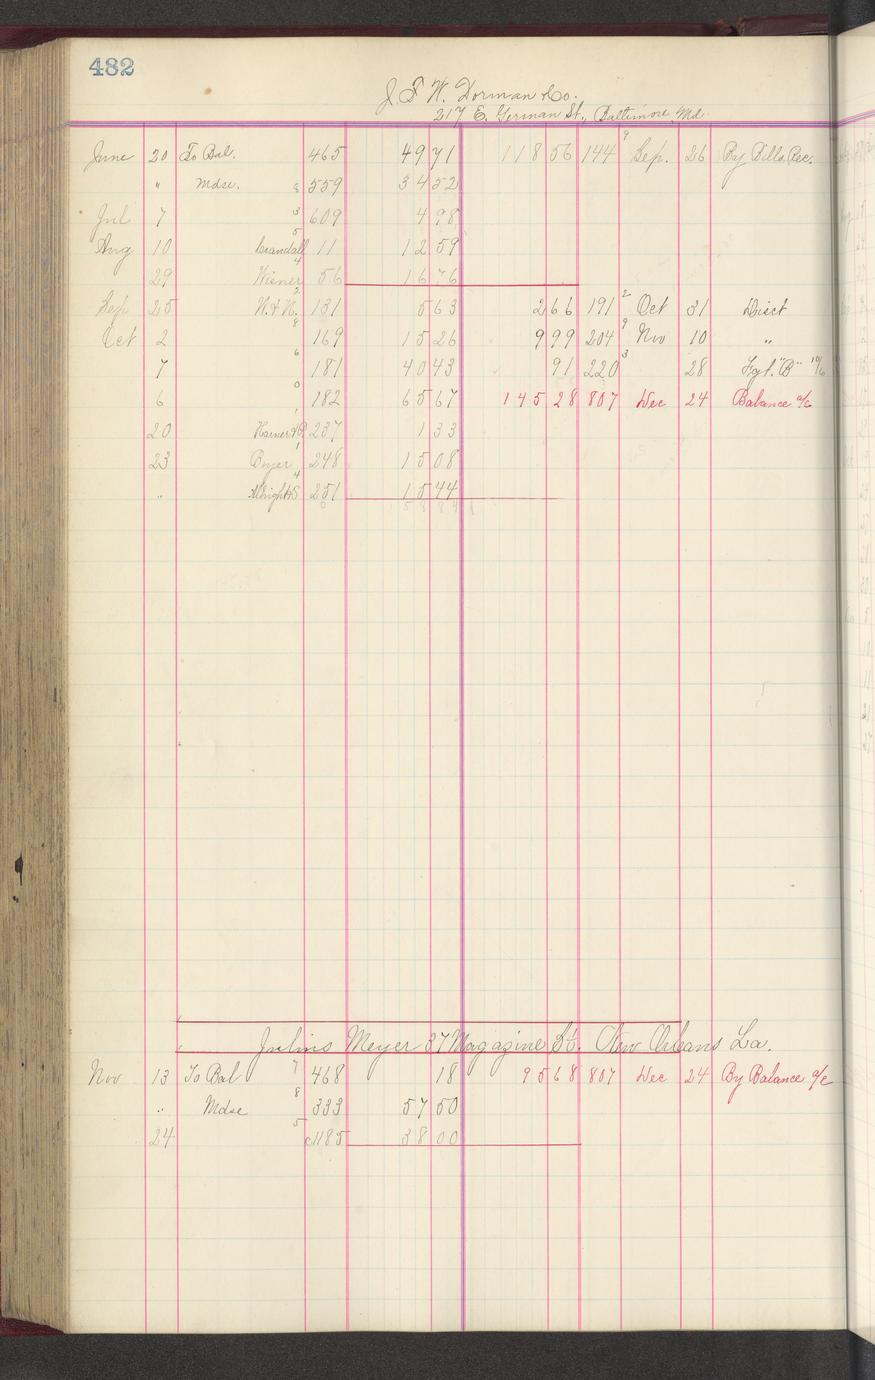 482
J F W. Dorman & Co.
217 E. German St., Baltimore Md.
June 20 To Bal. 465 49 71 118 56 144 9 Sep. 26 By Bills Rec.
" Mdse. 8 559 34 52
Jul 7 3 609 4 98
Aug 10 Crandall 5 11 12 59
29 Wisner 4 56 16 76
Sep 25 W. & N. 2 131 5 63 2 66 191 2 Oct 31 Disct
Oct 2 8 169 15 26 9 99 204 9 Nov 10 "
7 6 181 40 43 91 220 3 28 Fgt. "B" 10/6
6 0 182 65 67 145 28 807 Dec 24 Balance a/c
20 1 237 1 33
23 Boyer 1 248 15 08
" 4 251 15 44
0
Julius Meyer 37 Magazine St. New Orleans La.
Nov 13 To Bal 7 468 18 95 68 807 Dec 24 By Balance a/c
" Mdse 8 333 57 50
24 5 c1185 38 00